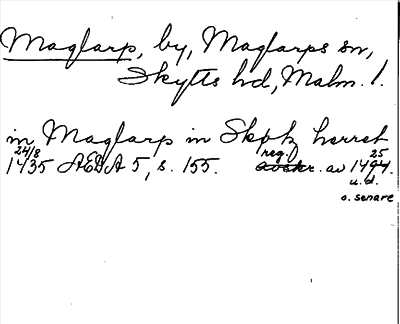 Maglarp, by, Maglarps sn,
Skytts hd, Malm. l.
in Maglarp in Skptz herret
24/8
1435 AEDA 5, s. 155. reg. av 1494. 25
u.d.
o. senare